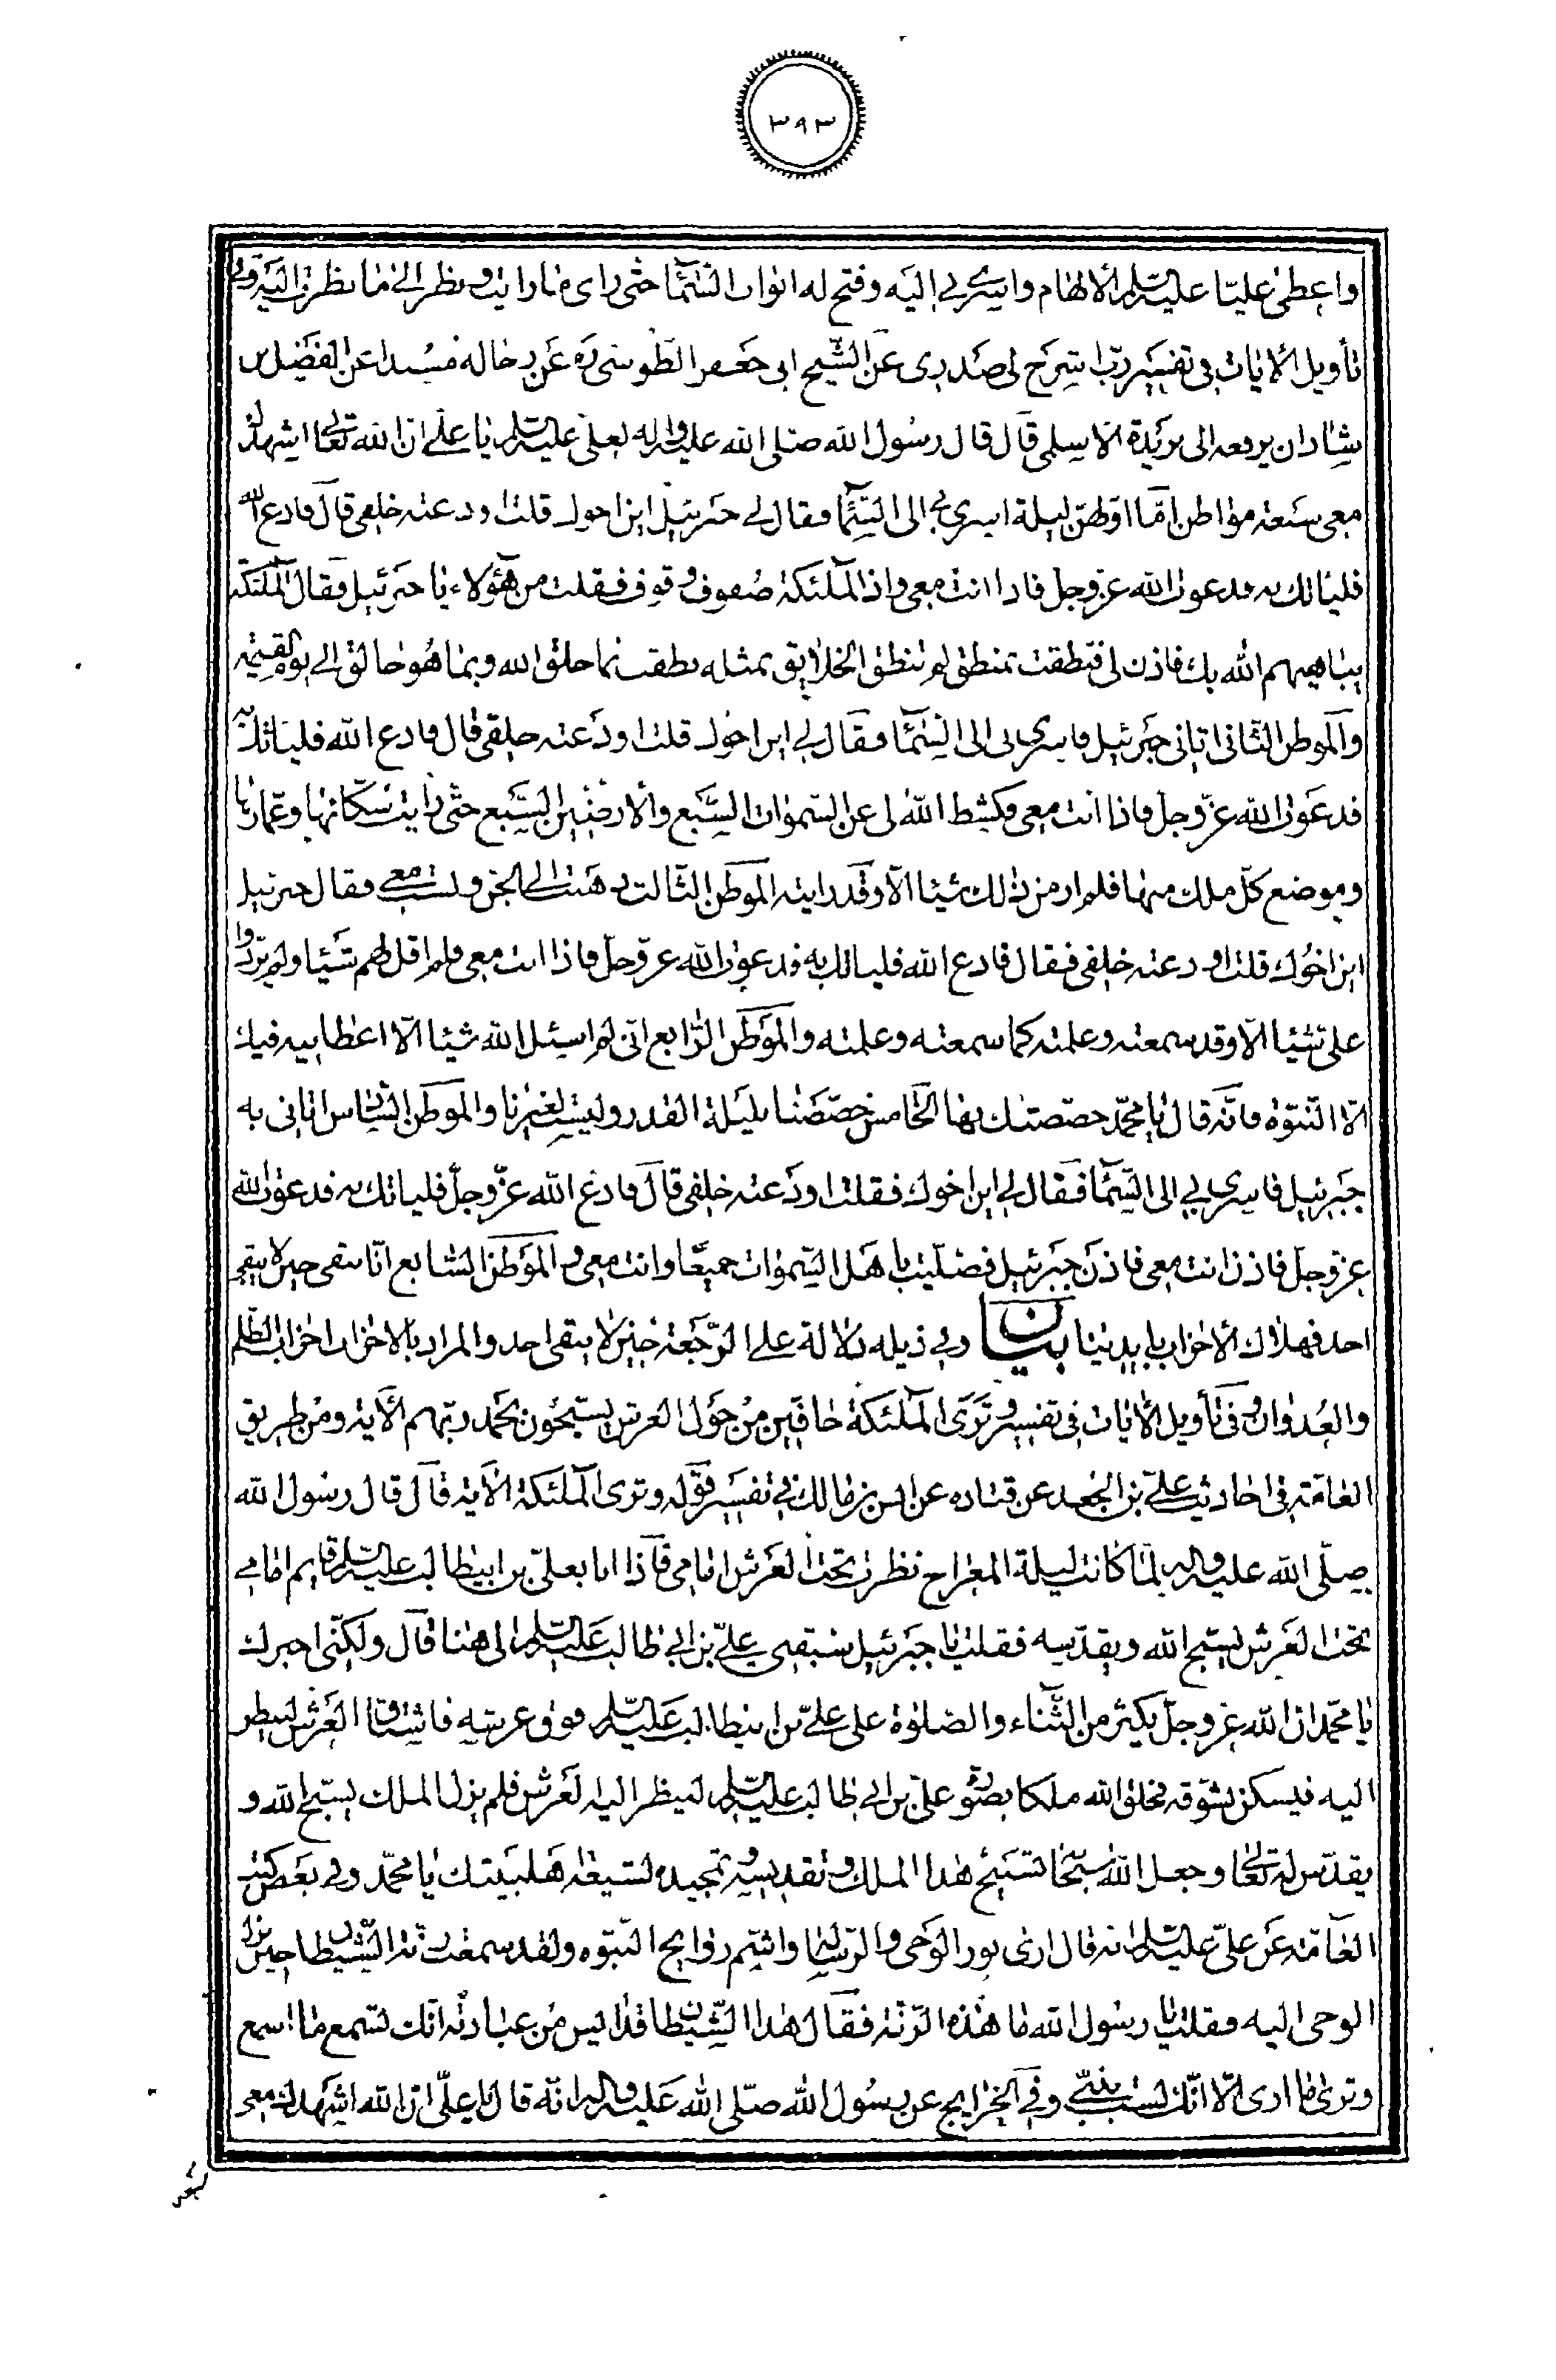 ٣٩٣
واعطى عليّا عليه السّلم الالهام واسرى بى اليه وفتح له ابواب السّمآء حتّى راى ما رايت ونظر الى ما نظرت اليه وفى
تأويل الايات فى تفسير ربّ اشرح لى صدرى عن الشّيخ ابى جعفر الطّوسى ره عن رجاله مسندا عن الفضل بن
شاذان يرفعه الى بريدة الاسلمى قال قال رسول الله صلى الله عليه واله لعلى عليه السّلم يا علىّ ان الله تعالى اشهدك
معى سبعة مواطن امّا اوّلهنّ ليلة اسرى بى الى السّمآء فقال لى جبرئيل اين اخوك قلت اودعته خلفى قال فادع الله
فلياتك به فدعوت الله عزّ وجلّ فاذا انت معى واذ الملئكة صفوف وقوف فقلت من هؤلاء يا جبرئيل فقال الملئكة
يباهيهم الله بك فاذن لى فنطقت بمنطق لم تنطق الخلايق بمثله نطقت بما خلق الله وبما هو خالق الى يوم القيمة
والموطن الثّانى اتانى جبرئيل فاسرى بى الى السّمآء فقال لى اين اخوك قلت اودعته خلفى قال فادع الله فلياتك به
فدعوت الله عزّ وجلّ فاذا انت معى فكشط الله لى عن السّموات السّبع والارضين السّبع حتّى رايت سكّانها وعمّارها
وموضع كلّ ملك منها فلم ار من ذلك شيئا الّا وقد رايته الموطن الثّالث ذهبت الى الجن ولست معى فقال جبرئيل
اين اخوك قلت اودعته خلفى فقال فادع الله فلياتك به فدعوت الله عزّ وجلّ فاذا انت معى فلم اقل لهم شيئا ولم يردّوا
علىّ شيئا الّا وقد سمعته وعلمته كما سمعته وعلمته والموطن الرّابع انّى لم اسئل الله شيئا الّا اعطانيه فيك
الّا النّبوّة فانّه قال يا محمّد خصّصتك بها الخامس خصّصنا بليلة القدر وليست لغيرنا والموطن السّادس اتانى به
جبرئيل فاسرى بى الى السّمآء فقال لى اين اخوك فقلت اودعته خلفى قال فادع الله عزّ وجلّ فلياتك به فدعوت الله
عزّ وجلّ فاذن انت معى فاذن جبرئيل فصلّيت باهل السّموات جميعا وانت معى والموطن السّابع انّا نبقى حين لا يبقى
احد فهلاك الاحزاب بايدينا بيان وفى ذيله دلالة على الرّجعة حين لا يبقى احد والمراد بالاحزاب احزاب الظّلم
والعدوان وفى تأويل الايات فى تفسير وترى الملئكة حافّين من حول العرش يسبّحون بحمد ربّهم الآية ومن طريق
العامّة فى احاديث علىّ بن الجعد عن قتاده عن انس بن مالك فى تفسير قوله وترى الملئكة الآية قال قال رسول الله
صلّى الله عليه واله لمّا كانت ليلة المعراج نظرت تحت العرش امامى فاذا انا بعلىّ بن ابيطالب عليه السّلم قايم امامى
تحت العرش يسبّح الله ويقدّسه فقلت يا جبرئيل سبقنى علىّ بن ابى طالب عليه السّلم الى هنا قال ولكنّى اخبرك
يا محمّد ان الله عزّ وجلّ يكثر من الثّناء والصّلوة على علىّ بن ابيطالب عليه السّلم فوق عرشه فاشتاق العرش لينظر
اليه فيسكن بشوقه فخلق الله ملكا بصورة علىّ بن ابى طالب عليه السّلم لينظر اليه العرش فلم يزل الملك يسبّح الله و
يقدّس له تعالى وجعل الله سبحانه تسبيح هذا الملك وتقديسه وتمجيده لشيعة اهل بيتك يا محمّد وفى بعض كتب
العامّة عن علىّ عليه السّلم انه قال ارى نور الوحى والرّسالة واشمّ روايح النّبوّه ولقد سمعت رنّة الشّيطان حين نزل
الوحى اليه فقلت يا رسول الله ما هذه الرّنّة فقال هذا الشّيطان قد ايس من عبادته انّك تسمع ما اسمع
وترى ما ارى الّا انّك لست بنبىّ وفى الخرايج عن رسول الله صلّى الله عليه واله انّه قال يا علىّ ان الله اشهدك معى